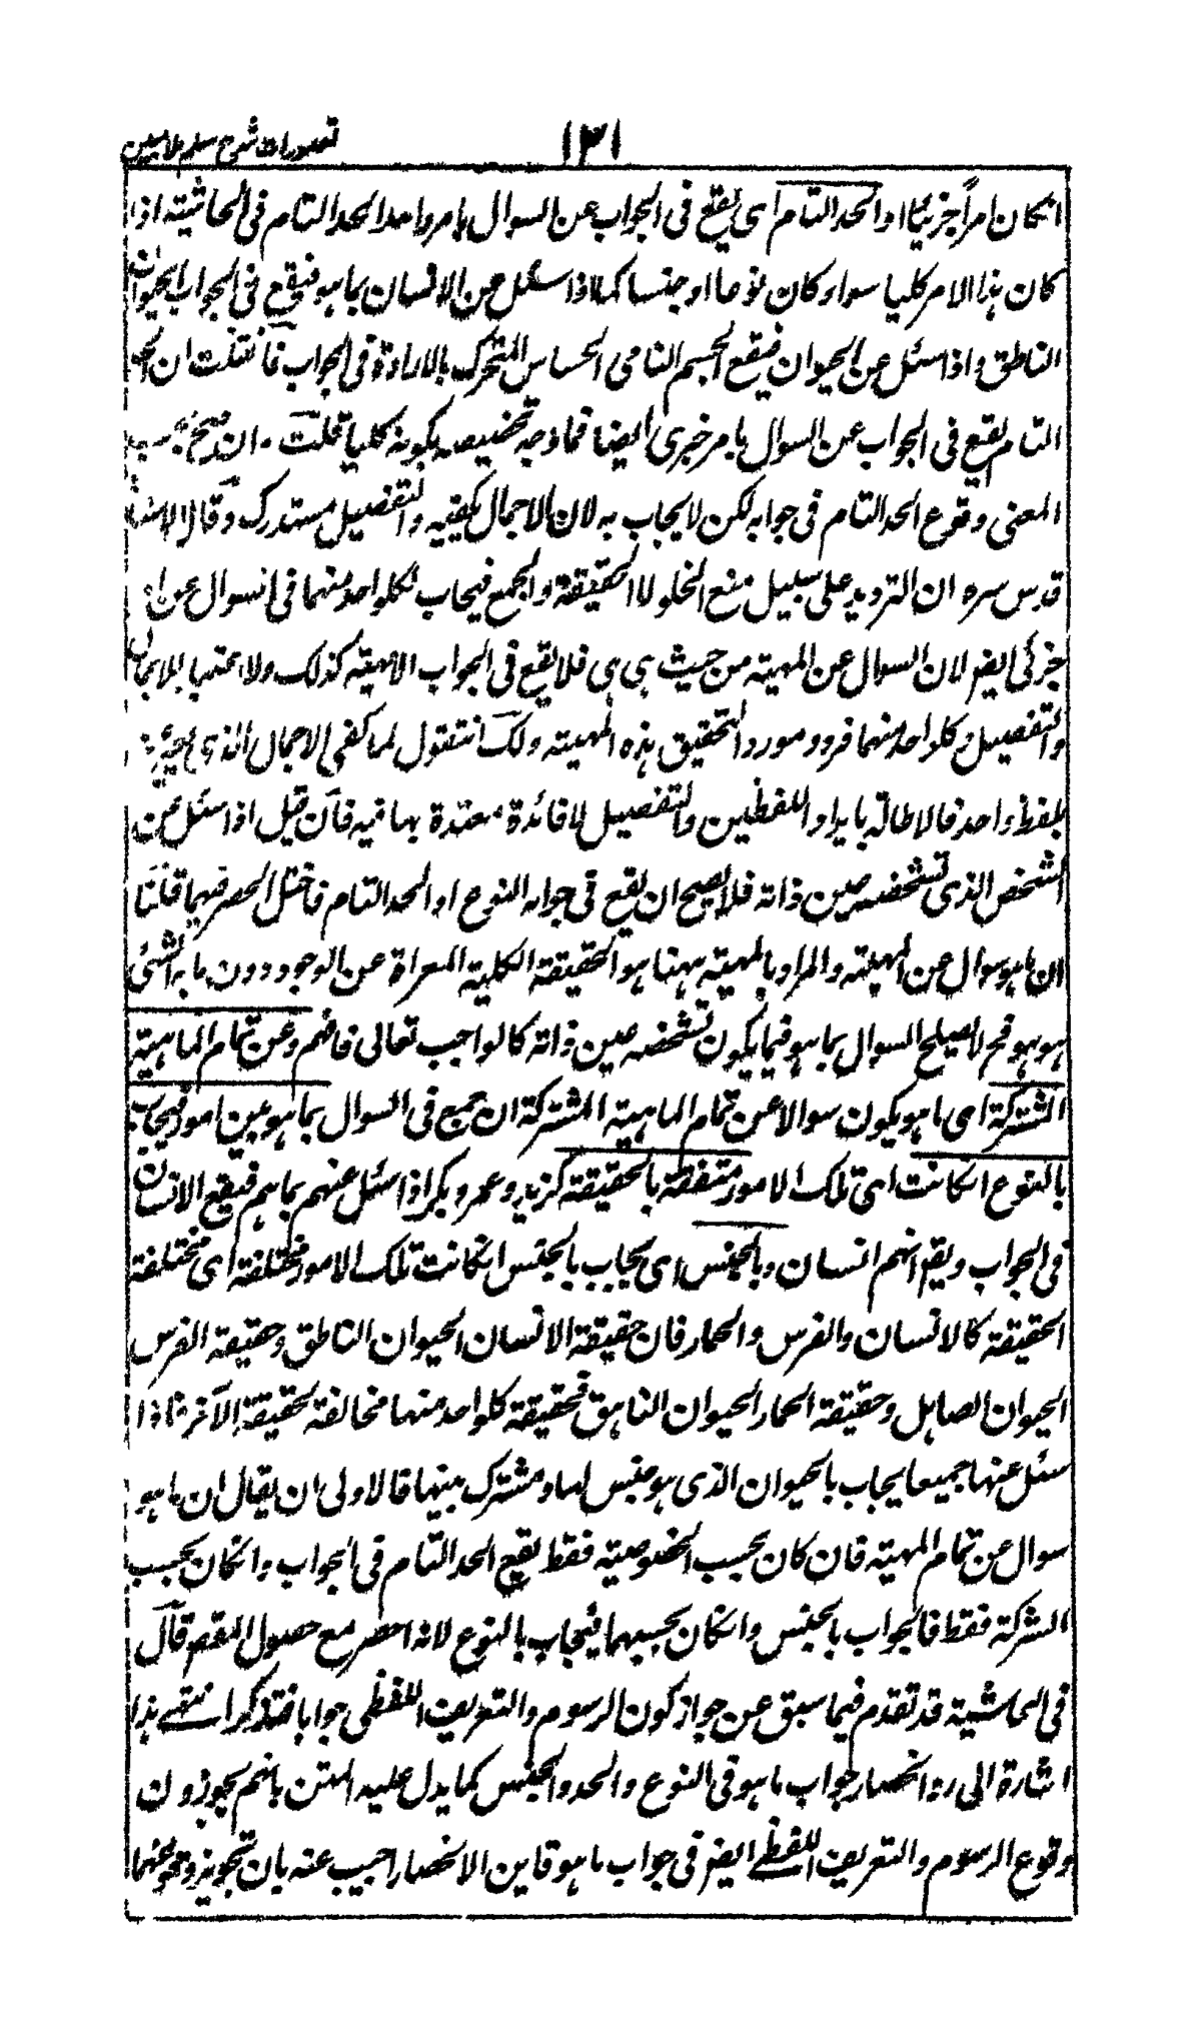 ۱۳۱
تصورات شرح سلم ملا مبین
انكان امراً جزئيًا او الحد التام اى يقع فى الجواب عن السوال بامر واحد الحد التام فى الحاشيته اذا
كان هذا الامر كليا سواء كان نوعا او جنسا كما اذا سئل عن الانسان بما هو فيقع فى الجواب الحيوان
الناطق واذا سئل عن الحيوان فيقع الجسم النامى الحساس المتحرك بالارادة فى الجواب فان قلت ان الحد
التام يقع فى الجواب عن السوال بامر جزئى ايضا فما وجه تخصيصه بكونه كليا قلت ان صح بحسب
المعنى وقوع الحد التام فى جوابه لكن لا يجاب به لان الاجمال يكفيه والتفصيل مستدرك وقال الاستاذ
قدس سره ان الترديد على سبيل منع الخلو لا الحقيقة والجمع فيجاب بكلواحد منهما فى السوال عن امر
جزئى ايضر لان السوال عن المهية من حيث هى هى فلا يقع فى الجواب الا المهيته كذلك ولا عتبا بالاجمال
والتفصيل وكلواحد منهما فرد ومورد التحقيق هذه المهيته ولك ان تقول لما كفى الاجمال الذى
بلفظ واحد فالاطالة بايراد اللفظين والتفصيل لا فائدة معتدة بها فيه فان قيل اذا سئل عن
الشخص الذى تشخصه عين ذاته فلا يصح ان يقع فى جوابه النوع او الحد التام فاختل الحصر فيهما قلنا
ان ما هو سوال عن المهيته والمراد بالمهيته ههنا هو الحقيقة الكلية المعراة عن الوجود دون ما به الشئ
هو هو فح لا يصلح السوال بما هو فيما يكون تشخصه عين ذاته كالواجب تعالى فافهم وعن تمام الماهيته
المشتركة اى ما هو يكون سوالا عن تمام الماهية المشتركة ان جمع فى السوال بما هو بين امور فيجاب
بالنوع انكانت اى تلك الامور متفقة بالحقيقة كزيد وعمر وبكر اذا سئل عنهم بما هم فيقع الانسان
فى الجواب ويقم انهم انسان وبالجنس اى يجاب بالجنس انكانت تلك الامور مختلفة اى مختلفة
الحقيقة كالانسان والفرس والحمار فان حقيقة الانسان الحيوان الناطق وحقيقة الفرس
الحيوان الصاهل وحقيقة الحمار الحيوان الناهق فحقيقة كلواحد منها مخالفة لحقيقة الآخر فاذا
سئل عنها جميعا يجاب بالحيوان الذى هو جنس لها ومشترك بينها فالاولى ان يقال ان ما هو
سوال عن تمام المهيته فان كان بحسب الخصوصية فقط يقع الحد التام فى الجواب وانكان بحسب
الشركة فقط فالجواب بالجنس وانكان بحسبهما فيجاب بالنوع لانه احضر مع حصول المقصم قال
فى الحاشية قد تقدم فيما سبق عن جواز كون الرسوم والتعريف اللفظى جوابا فتذكر انتهى هذا
اشارة الى رد انحصار جواب ما هو فى النوع والحد والجنس كما يدل عليه المتن بانهم يجوزون
وقوع الرسوم والتعريف اللفظى ايضر فى جواب ما هو فاين الانحصار اجيب عنه بان تجويز وقوعهما